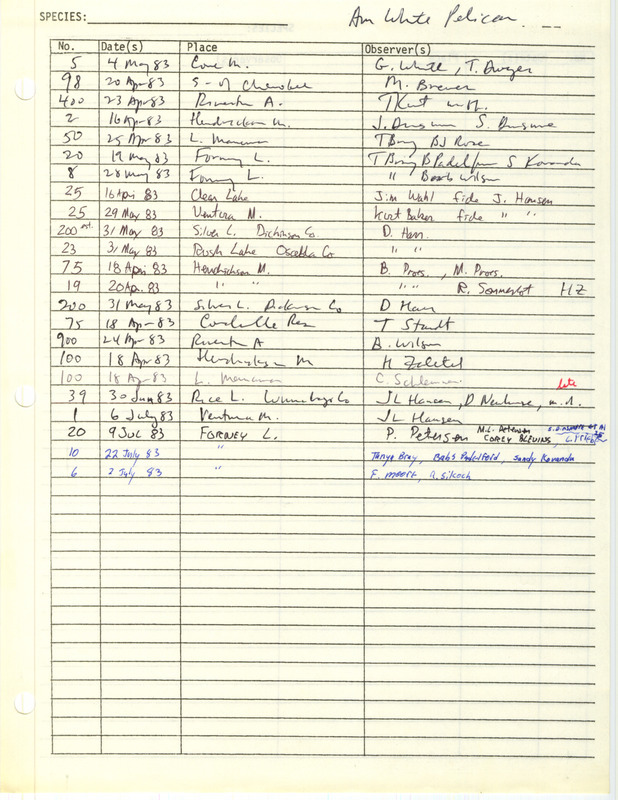 SPECIES: Am White Pelican
No. Date(s) Place Observer(s)
5 4 May 83 Cone M. G. White, T. Dwyer
98 20 Apr 83 S - of Cherokee M. Brewer
400 23 Apr 83 Riverton A. T Kent
2 16 Apr 83 Hendrickson M. J. Dinsmore S. Dinsmore
50 25 Apr 83 L. Manawa T Bray BJ Rose
20 19 May 83 Forney L. T Bray B Padelford S Kovanda
8 28 May 83 Forney L. " Barb Wilson
25 16 Apri 83 Clear Lake Jim Wahl fide J. Hansen
25 29 May 83 Ventura M. Kurt Baker fide " "
200 est. 31 May 83 Silver L. Dickinson Co. D. Harr
23 31 May 83 Rush Lake Osceola Co " "
75 18 Apri 83 Hendrickson M. B. Proes., M. Proes.
19 20 Apri. 83 " " " R. HZ
200 31 May 83 Silver L. Dickinson Co D Harr
75 18 Apr 83 Coralville Res T Staudt
900 24 Apr 83 Riverton A B. Wilson
100 18 Apr 83 Hendrickson M H Zaletel
100 18 Apr 83 L. Manawa C. Schleicher
39 30 Jun 83 Rice L. Winnebago Co JL Hansen, D Newhouse, m.ob. late
1 6 July 83 Ventura M. JL Hansen
20 9 Jul 83 FORNEY L. P. Petersen M.L. Petersen COREY BLEVINS,
10 22 July 83 " Tanya Bray, Babs Padelford, Sandy Kovanda
6 2 July 83 " F. Moore, A. Sikoch